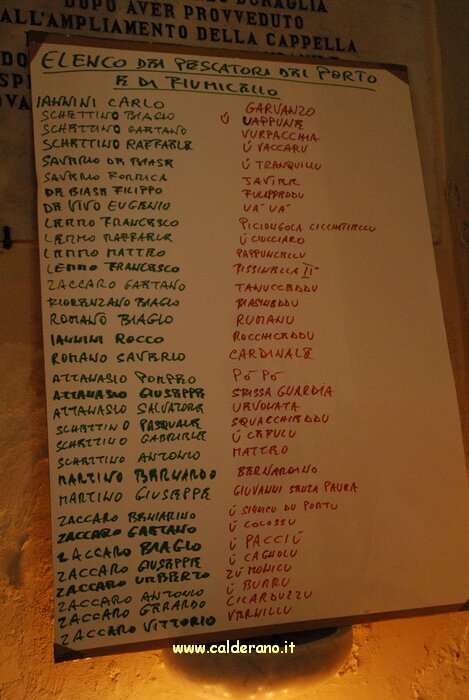 DOPO AVER PROVVEDUTO
ALL'AMPLIAMENTO DELLA CAPPELLA
ELENCO DEI PESCATORI DEL PORTO
E DI FIUMICELLO
IANNINI CARLO GARVANZO
SCHETTINO BIAGIO Ú UAPPUNE
SCHETTINO GAETANO VURPACCHIA
SCHETTINO RAFFAELE Ú VACCARU
SAVERIO DE BIASE Ú TRANQUILLU
SAVERIO FORMICA SAVIERE
DE BIASE FILIPPO FULIPPEDDU
DE VIVO EUGENIO VA' VA'
LEMMO FRANCESCO PICIONGOLA CICCHITIELLU
LEMMO RAFFAELE Ú CIUCCIARO
LEMMO MATTEO PAPPUNCELLU
LEMMO FRANCESCO PISSINELLA II°
ZACCARO GAETANO TANUCCEDDU
FIORENZANO BIAGIO BIASINEDDU
ROMANO BIAGIO RUMANU
IANNINI ROCCO ROCCHICEDDU
ROMANO SAVERIO CARDINALE
ATTANASIO POMPEO PO' PO'
ATTANASIO GIUSEPPE SPISSA GUARDIA
ATTANASIO SALVATORE URVOLATA
SCHETTINO PASQUALE SQUACCHIEDDU
SCHETTINO GABRIELE Ú CEFULU
SCHETTINO ANTONIO MATTEO
MARTINO BERNARDO BERNARDINO
MARTINO GIUSEPPE GIUVANNI SENZA PAURA
ZACCARO BENIAMINO Ú SINDICU DU PORTU
ZACCARO GAETANO Ú COLOSSU
ZACCARO BIAGIO Ú PACCIÚ
ZACCARO GIUSEPPE Ú CAGNOLU
ZACCARO UMBERTO ZÚ MONICU
ZACCARO ANTONIO Ú BURRU
ZACCARO GERARDO CICARDUZZU
ZACCARO VITTORIO VERNILLU
www.calderano.it